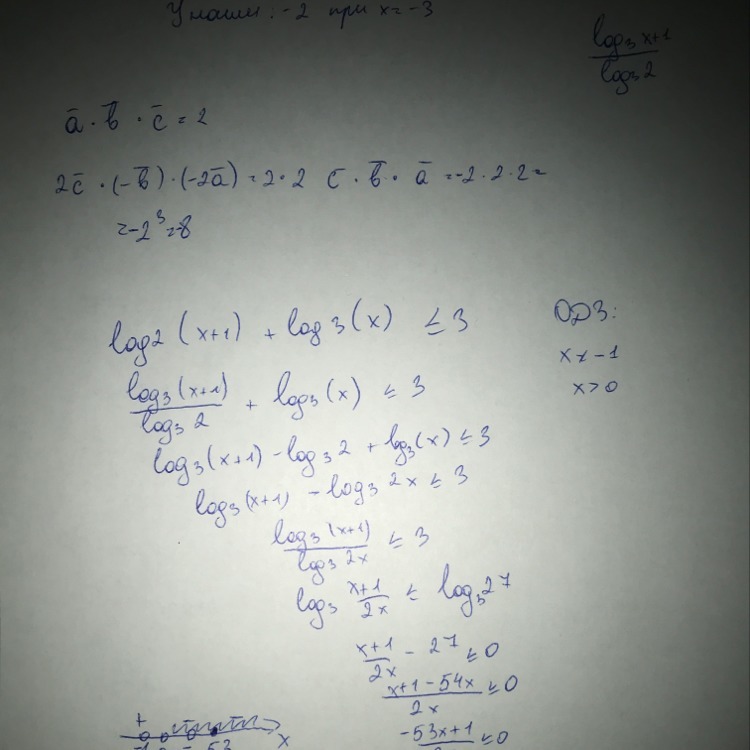 У наим: -2 при x = -3
log₃ x+1 / log₃ 2
a̅ · b̅ · c̅ = 2
2c̅ · (-b̅) · (-2a̅) = 2 · 2 c̅ · b̅ · a̅ = -2 · 2 · 2 =
= -2³ = -8
log2 (x+1) + log3 (x) ≤ 3
ОДЗ:
x < -1
x > 0
log₃(x+1) / log₃ 2 + log₃(x) ≤ 3
log₃(x+1) - log₃ 2 + log₃(x) ≤ 3
log₃(x+1) - log₃ 2x ≤ 3
log₃(x+1) / log₃ 2x ≤ 3
log₃ x+1 / 2x ≤ log₃ 27
x+1 / 2x - 27 ≤ 0
x+1-54x / 2x ≤ 0
-53x+1 / ≤ 0
+
x